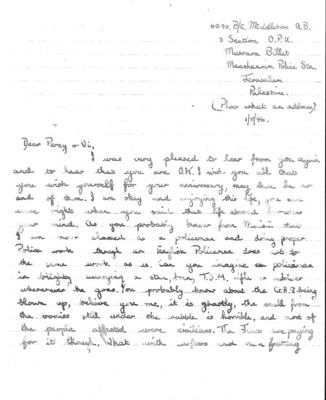 4090, B/C. Middleton A.B.
3 Section O.P.U.
Musrara Billet
Meashearim Police Stn.
Jerusalem
Palestine.
(Phew what an address)
1/8/46.
Dear Percy & Vi,
I was very pleased to hear from you again
and to hear that you are O.K. I wish you all that
you wish yourself for your anniversary, may there be no
end of them. I am okay and enjoying this life, you are
sure right when you said that life abroad broadens
your mind. As you probably know from that
I am now classed as a policeman and doing proper
Police work though an English Policeman does not do
the same work as us. Can you imagine a policeman
in blighty carrying a sten, bren, T.S.M. rifle or
wherever he goes. You probably know about the K.H.Q being
blown up, believe you me, it is ghastly, the smell from
the bodies still under the rubble is horrible, and most of
the people affected were civilians. The Jews are paying
for it though. What with curfews and non